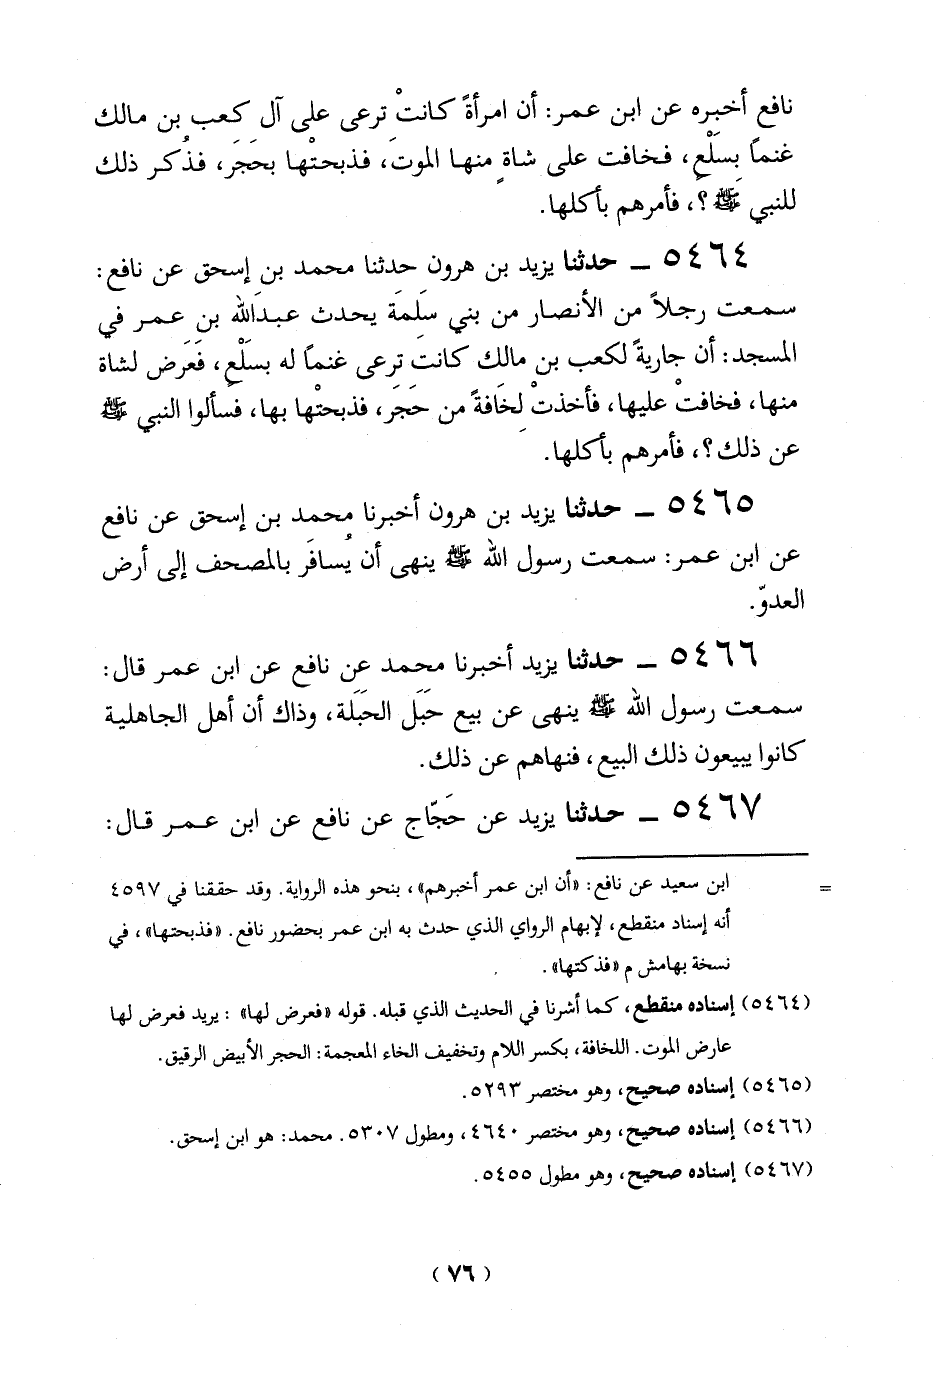 نافع أخبره عن ابن عمر: أن امرأةً كانتْ ترعى على آل كعب بن مالك
غنماً بِسَلْعٍ، فخافت على شاةٍ منها الموتَ، فذبحتْها بحَجَر، فذُكر ذلك
للنبي ﷺ؟، فأمرهم بأكلها.
٥٤٦٤ ــ حدثنا يزيد بن هرون حدثنا محمد بن إسحق عن نافع:
سمعت رجلاً من الأنصار من بني سَلِمَة يحدث عبدَالله بن عمر في
المسجد: أن جاريةً لكعب بن مالك كانت ترعى غنماً له بسلْعٍ، فَعَرَض لشاة
منها، فخافتْ عليها، فأخذتْ لِخَافةً من حَجَر، فذبحتْها بها، فسألوا النبي ﷺ
عن ذلك؟، فأمرهم بأكلها.
٥٤٦٥ ــ حدثنا يزيد بن هرون أخبرنا محمد بن إسحق عن نافع
عن ابن عمر: سمعت رسول الله ﷺ ينهى أن يُسافَر بالمصحف إلى أرض
العدوّ.
٥٤٦٦ ــ حدثنا يزيد أخبرنا محمد عن نافع عن ابن عمر قال:
سمعت رسول الله ﷺ ينهى عن بيع حَبَل الحَبَلة، وذاك أن أهل الجاهلية
كانوا يبيعون ذلك البيع، فنهاهم عن ذلك.
٥٤٦٧ ــ حدثنا يزيد عن حَجّاج عن نافع عن ابن عمر قال:
= ابن سعيد عن نافع: «أن ابن عمر أخبرهم»، بنحو هذه الرواية. وقد حققنا في ٤٥٩٧
أنه إسناد منقطع، لإبهام الرواي الذي حدث به ابن عمر بحضور نافع. «فذبحتها»، في
نسخة بهامش م «فذكتها».
(٥٤٦٤) إسناده منقطع، كما أشرنا في الحديث الذي قبله. قوله «فعرض لها» : يريد فعرض لها
عارض الموت. اللخافة، بكسر اللام وتخفيف الخاء المعجمة: الحجر الأبيض الرقيق.
(٥٤٦٥) إسناده صحيح، وهو مختصر ٥٢٩٣.
(٥٤٦٦) إسناده صحيح، وهو مختصر ٤٦٤٠، ومطول ٥٣٠٧. محمد: هو ابن إسحق.
(٥٤٦٧) إسناده صحيح، وهو مطول ٥٤٥٥.
(٧٦)